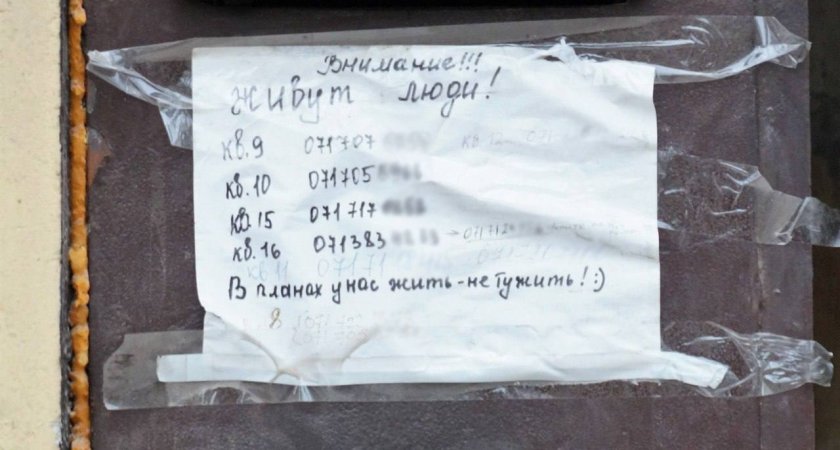 Внимание!!!
живут люди!
кв.9 071707
кв.10 071705
кв.15 071717
кв.16 071383
кв 11 07171
В планах у нас жить - не тужить! :)
8